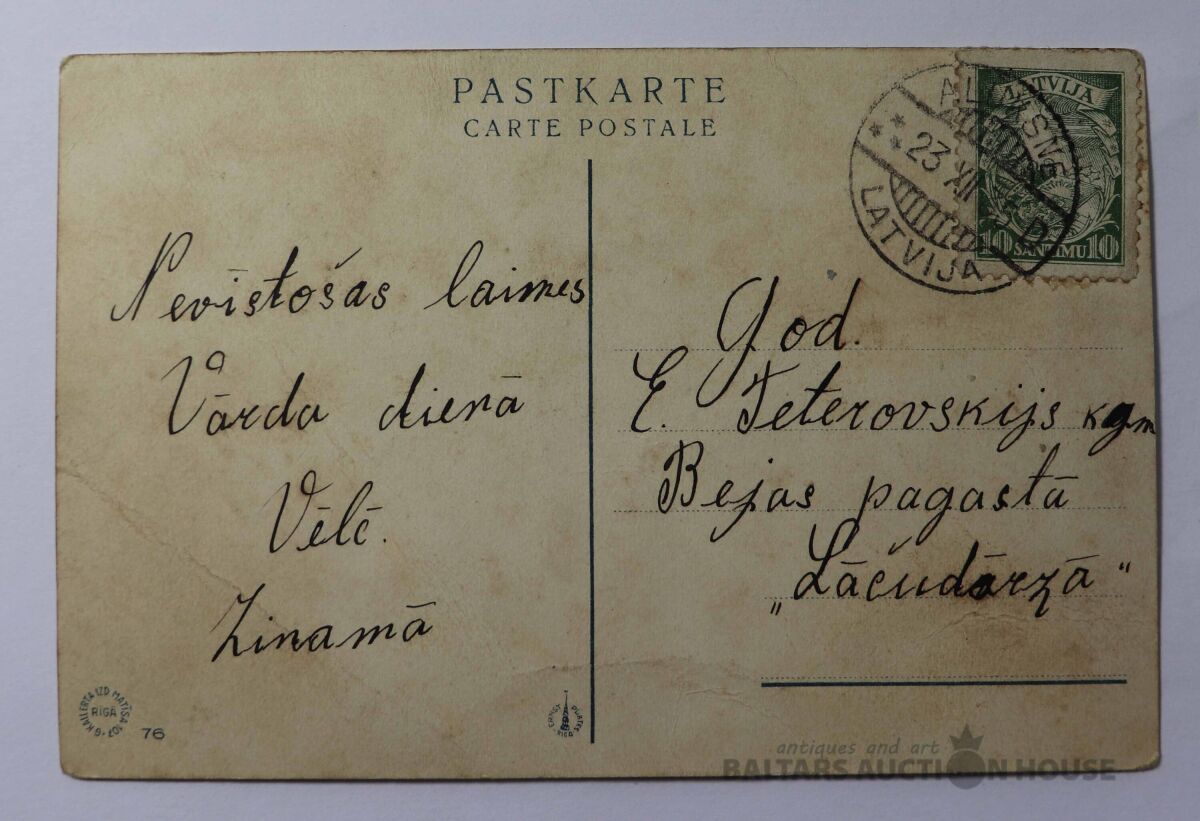 PASTKARTE
CARTE POSTALE
LATVIJA
10 SANTIMU 10
ALŪKSNE
23 XII
LATVIJA
Nevīstošas laimes
Vārda dienā
Vēlē.
Zinamā
God.
E. Teterovskijs kgm
Bejas pagastā
„Lāčudārzā"
G KALLERTA IZD MATĪSA 107
RĪGĀ
76
antiques and art
BALTARS AUCTION HOUSE